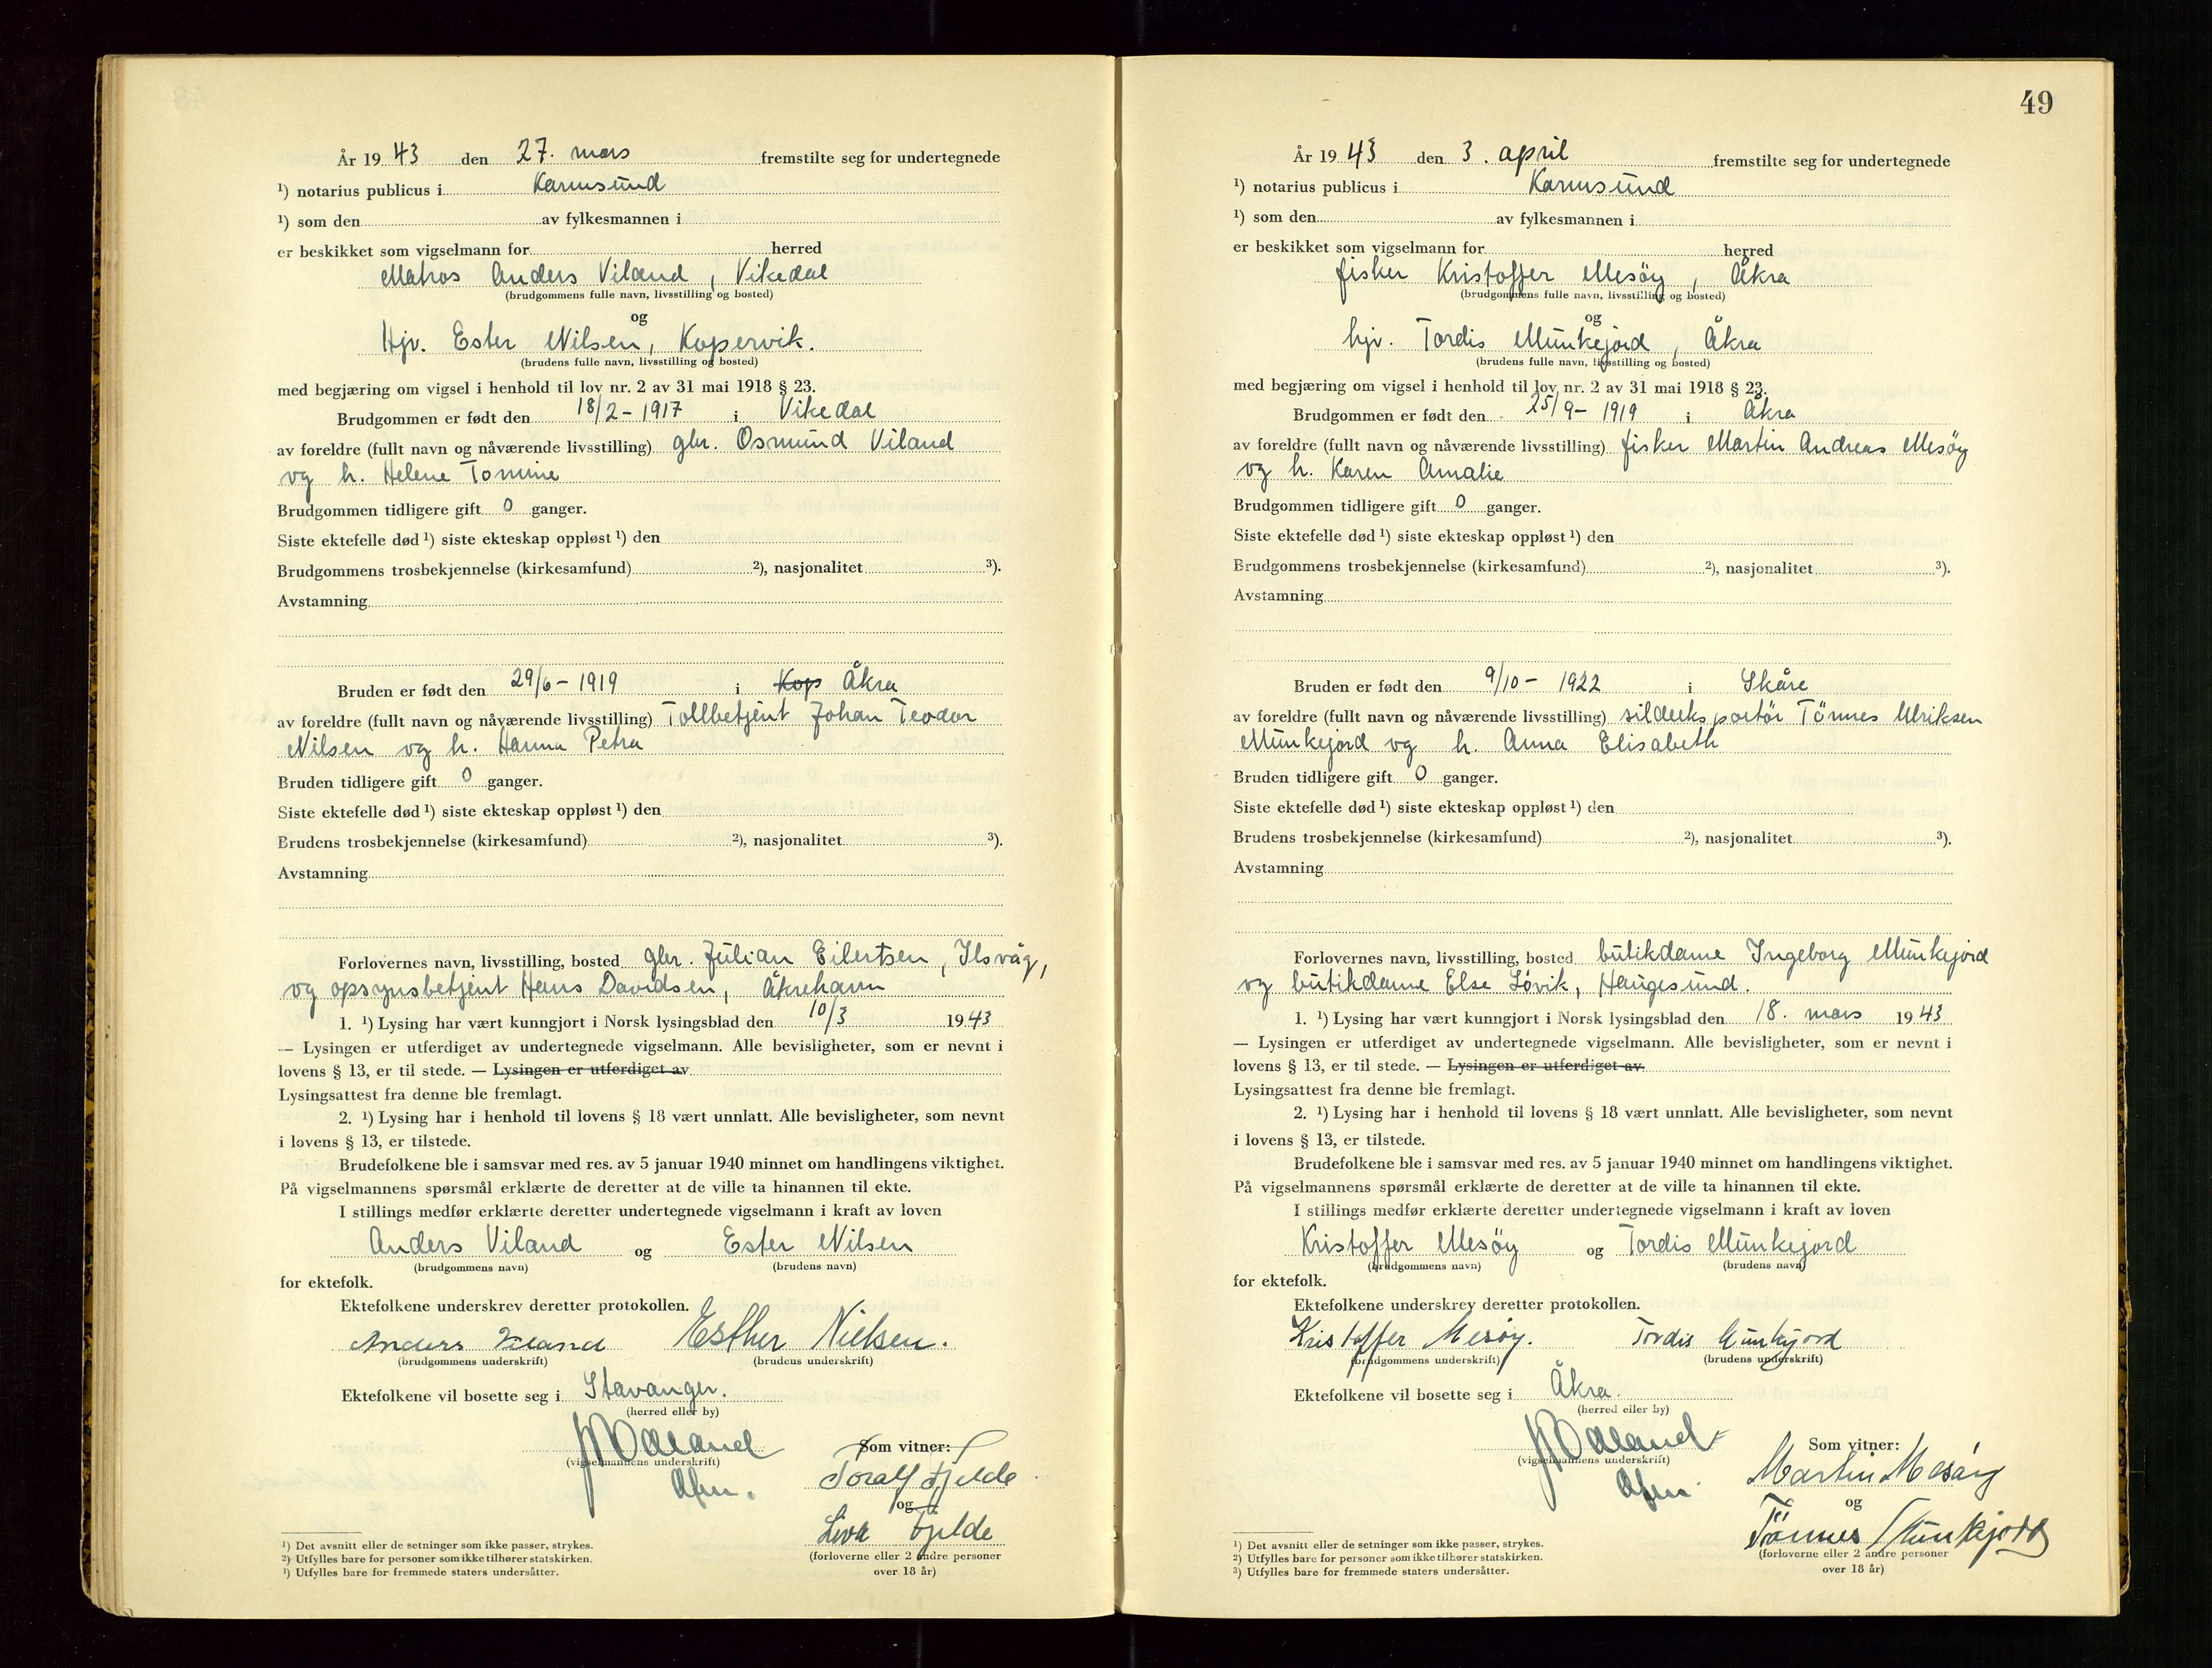 År 19 43 den 27. mars fremstilte seg for undertegnede
¹) notarius publicus i Karmsund
¹) som den av fylkesmannen i
er beskikket som vigselmann for herred
Matros Anders Viland, Vikedal
(brudgommens fulle navn, livsstilling og bosted)
og
Hjv. Ester Nilsen, Kopervik.
(brudens fulle navn, livsstilling og bosted)
med begjæring om vigsel i henhold til lov nr. 2 av 31 mai 1918 § 23.
Brudgommen er født den 18/2 - 1917 i Vikedal
av foreldre (fullt navn og nåværende livsstilling) gbr. Osmund Viland
og h. Helene Tomine
Brudgommen tidligere gift 0 ganger.
Siste ektefelle død ¹) siste ekteskap oppløst ¹) den
Brudgommens trosbekjennelse (kirkesamfund) ²), nasjonalitet ³).
Avstamning
Bruden er født den 29/6 - 1919 i Kop Åkra
av foreldre (fullt navn og nåværende livsstilling) Tollbetjent Johan Teodor
Nilsen og h. Hanna Petra
Bruden tidligere gift 0 ganger.
Siste ektefelle død ¹) siste ekteskap oppløst ¹) den
Brudens trosbekjennelse (kirkesamfund) ²), nasjonalitet ³).
Avstamning
Forlovernes navn, livsstilling, bosted gbr. Julian Eilertsen, Ilsvåg,
og opsynsbetjent Hans Davidsen, Åkrehamn
1. ¹) Lysing har vært kunngjort i Norsk lysingsblad den 10/3 19 43
— Lysingen er utferdiget av undertegnede vigselmann. Alle bevisligheter, som er nevnt i
lovens § 13, er til stede. — Lysingen er utferdiget av
Lysingsattest fra denne ble fremlagt.
2. ¹) Lysing har i henhold til lovens § 18 vært unnlatt. Alle bevisligheter, som nevnt
i lovens § 13, er tilstede.
Brudefolkene ble i samsvar med res. av 5 januar 1940 minnet om handlingens viktighet.
På vigselmannens spørsmål erklærte de deretter at de ville ta hinannen til ekte.
I stillings medfør erklærte deretter undertegnede vigselmann i kraft av loven
Anders Viland og Ester Nilsen
(brudgommens navn) (brudens navn)
for ektefolk.
Ektefolkene underskrev deretter protokollen.
Anders Viland Esther Nielsen.
(brudgommens underskrift) (brudens underskrift)
Ektefolkene vil bosette seg i Stavanger.
(herred eller by)
Som vitner:
(vigselmannens underskrift)
Toralf Fjelde
og
Fjelde
(forloverne eller 2 andre personer
over 18 år)
¹) Det avsnitt eller de setninger som ikke passer, strykes.
²) Utfylles bare for personer som ikke tilhører statskirken.
³) Utfylles bare for fremmede staters undersåtter.
49
År 19 43 den 3. april fremstilte seg for undertegnede
¹) notarius publicus i Karmsund
¹) som den av fylkesmannen i
er beskikket som vigselmann for herred
fisker Kristoffer Mesöy, Åkra
(brudgommens fulle navn, livsstilling og bosted)
og
hjv. Tordis Munkejord, Åkra
(brudens fulle navn, livsstilling og bosted)
med begjæring om vigsel i henhold til lov nr. 2 av 31 mai 1918 § 23.
Brudgommen er født den 25/9 - 1919 i Åkra
av foreldre (fullt navn og nåværende livsstilling) fisker Martin Andreas Mesöy
og h. Karen Amalie
Brudgommen tidligere gift 0 ganger.
Siste ektefelle død ¹) siste ekteskap oppløst ¹) den
Brudgommens trosbekjennelse (kirkesamfund) ²), nasjonalitet ³).
Avstamning
Bruden er født den 9/10 - 1922 i Skåre
av foreldre (fullt navn og nåværende livsstilling) sildeeksportör Tönnes Ulriksen
Munkejord og h. Anna Elisabeth
Bruden tidligere gift 0 ganger.
Siste ektefelle død ¹) siste ekteskap oppløst ¹) den
Brudens trosbekjennelse (kirkesamfund) ²), nasjonalitet ³).
Avstamning
Forlovernes navn, livsstilling, bosted butikdame Ingeborg Munkejord
og butikdame Else Lövik, Haugesund.
1. ¹) Lysing har vært kunngjort i Norsk lysingsblad den 18. mars 19 43
— Lysingen er utferdiget av undertegnede vigselmann. Alle bevisligheter, som er nevnt i
lovens § 13, er til stede. — Lysingen er utferdiget av
Lysingsattest fra denne ble fremlagt.
2. ¹) Lysing har i henhold til lovens § 18 vært unnlatt. Alle bevisligheter, som nevnt
i lovens § 13, er tilstede.
Brudefolkene ble i samsvar med res. av 5 januar 1940 minnet om handlingens viktighet.
På vigselmannens spørsmål erklærte de deretter at de ville ta hinannen til ekte.
I stillings medfør erklærte deretter undertegnede vigselmann i kraft av loven
Kristoffer Mesöy og Tordis Munkejord
(brudgommens navn) (brudens navn)
for ektefolk.
Ektefolkene underskrev deretter protokollen.
Kristoffer Mesöy. Tordis Munkejord
(brudgommens underskrift) (brudens underskrift)
Ektefolkene vil bosette seg i Åkra.
(herred eller by)
Som vitner:
(vigselmannens underskrift)
Martin Mesöy
og
Tönnes Munkejord
(forloverne eller 2 andre personer
over 18 år)
¹) Det avsnitt eller de setninger som ikke passer, strykes.
²) Utfylles bare for personer som ikke tilhører statskirken.
³) Utfylles bare for fremmede staters undersåtter.